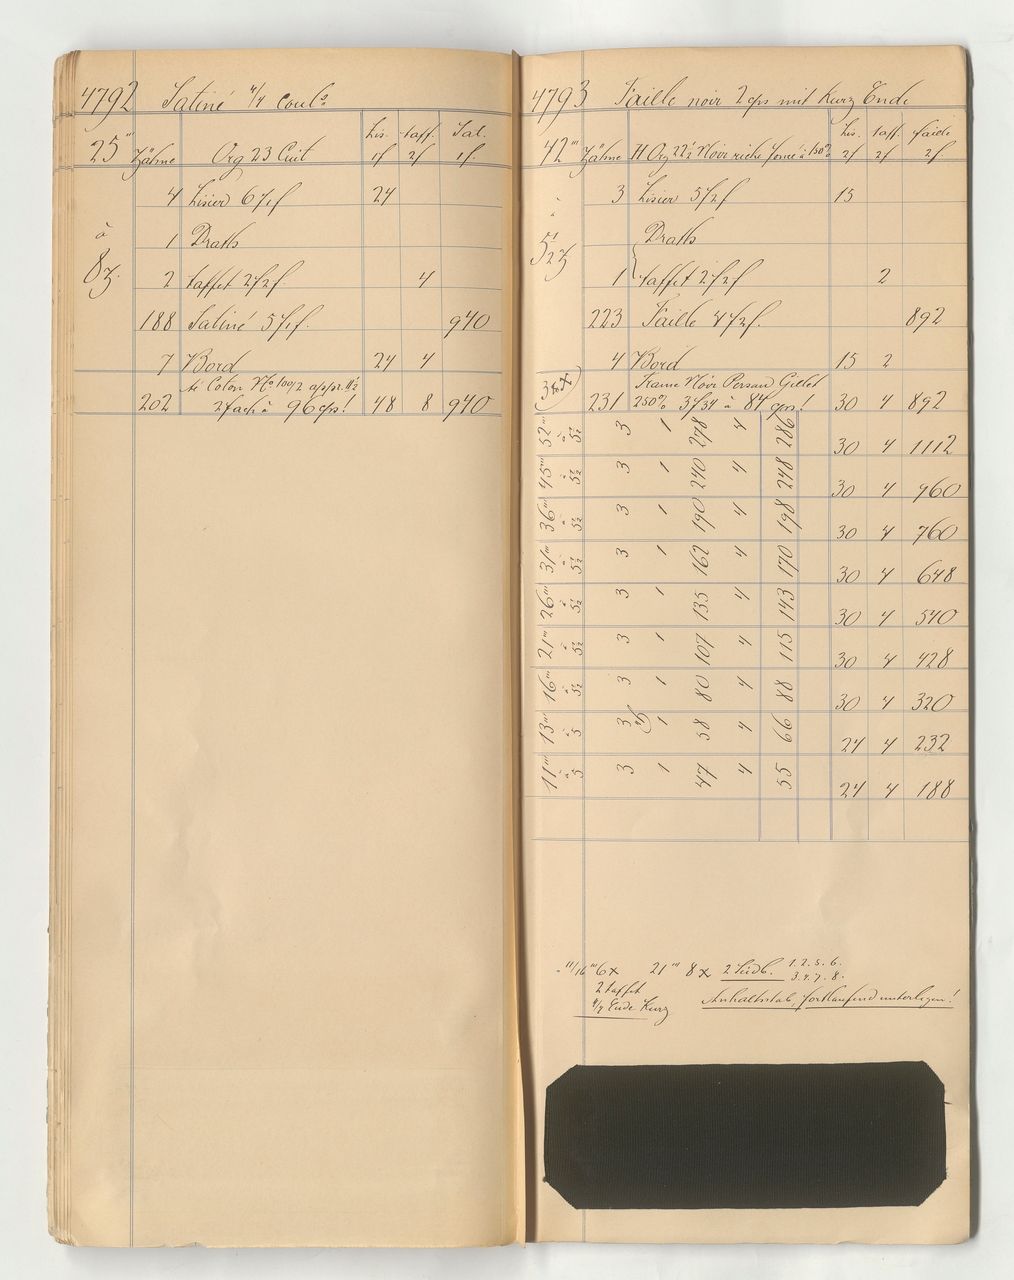 4792 Satiné 4/4 coul.
lis. taff. Sat.
25''' Zähne Org 23 Cuit 1f 2f 1f.
4 Lisier 6/1f 24
à 1 Draths
8z. 2 taffet 2f2f. 4
188 Satiné 5/1f. 940
7 Bord 24 4
Coton No 100/2
202 2fach à 96 cps! 48 8 940
4793 Faille noir 2 cps mit Kurz Ende
lis. taff. faille
42''' Zähne H Org 22½ Noir riche à 150% 2f 2f 2f.
3 Lisier 5f2f 15
à Draths
5½z 1 taffet 2f2f 2
223 Faille 4f2f. 892
4 Bord 15 2
Trame Noir Persan Gillet
231 250% 3f34 à 84 cps! 30 4 892
52''' à 5½ 3 1 278 4 286 30 4 1112
45''' à 5½ 3 1 240 4 248 30 4 960
36''' à 5½ 3 1 190 4 198 30 4 760
31''' à 5½ 3 1 162 4 170 30 4 648
26''' à 5½ 3 1 135 4 143 30 4 540
21''' à 5½ 3 1 107 4 115 30 4 428
16''' à 5½ 3 1 80 4 88 30 4 320
13''' à 5 3 1 58 4 66 24 4 232
11''' à 5 3 1 47 4 55 24 4 188
11/16''' 6x 21''' 8x 2 1.2.5.6.
2 taffet 3.4.7.8.
4/4 Ende Kurz Anhaltsstab, fortlaufend unterlegen!